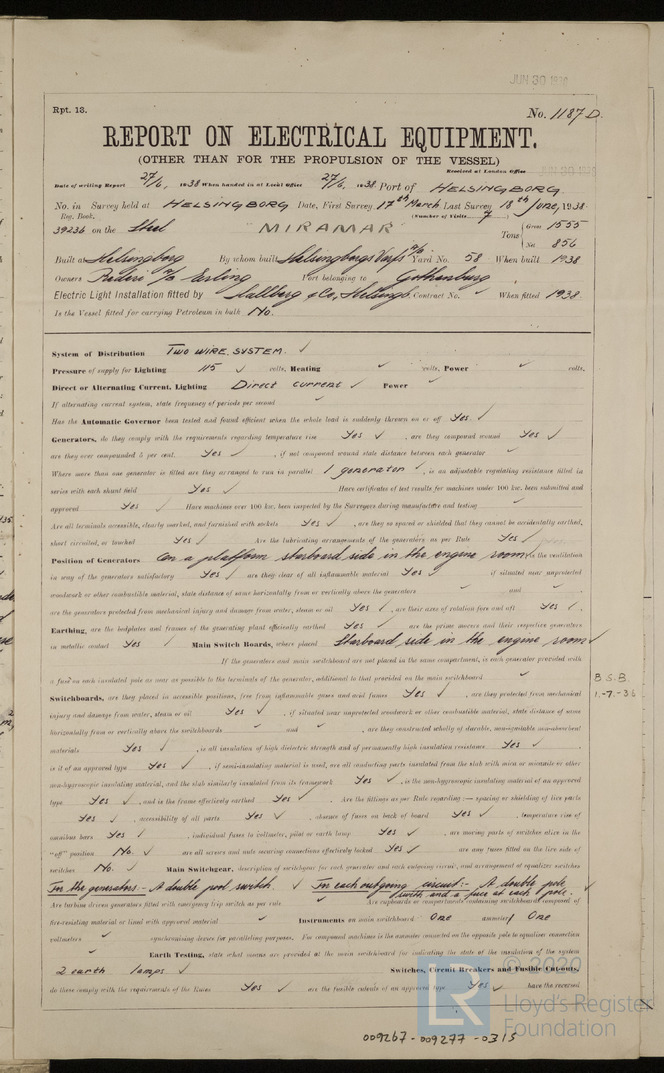 JUN 30 1938
Rpt. 13.
No. 1187 D.
REPORT ON ELECTRICAL EQUIPMENT.
(OTHER THAN FOR THE PROPULSION OF THE VESSEL)
Received at London Office JUN 30 1938
Date of writing Report 27/6, 1938 When handed in at Local Office 27/6, 1938. Port of HELSINGBORG.
No. in Survey held at HELSINGBORG Date, First Survey 17th March Last Survey 18th June, 1938
Reg. Book. (Number of Visits 7)
39236 on the Steel MIRAMAR Tons { Gross 1555
Net 856
Built at Helsingborg By whom built Helsingborgs Varfs A/B Yard No. 58 When built 1938
Owners Rederi A/B Erling Port belonging to Gothenburg
Electric Light Installation fitted by & Co, Helsingb. Contract No. When fitted 1938.
Is the Vessel fitted for carrying Petroleum in bulk No.
System of Distribution TWO WIRE SYSTEM. ✓
Pressure of supply for Lighting 115 ✓ volts, Heating ✓ volts, Power ✓ volts.
Direct or Alternating Current, Lighting Direct current ✓ Power ✓
If alternating current system, state frequency of periods per second ✓
Has the Automatic Governor been tested and found efficient when the whole load is suddenly thrown on or off Yes. ✓
Generators, do they comply with the requirements regarding temperature rise Yes ✓, are they compound wound Yes ✓
are they over compounded 5 per cent. Yes ✓, if not compound wound state distance between each generator ✓
Where more than one generator is fitted are they arranged to run in parallel 1 generator ✓, is an adjustable regulating resistance fitted in
series with each shunt field Yes ✓ Have certificates of test results for machines under 100 kw. been submitted and
approved Yes ✓ Have machines over 100 kw. been inspected by the Surveyors during manufacture and testing ✓
Are all terminals accessible, clearly marked, and furnished with sockets Yes ✓, are they so spaced or shielded that they cannot be accidentally earthed,
short circuited, or touched Yes ✓ Are the lubricating arrangements of the generators as per Rule Yes ✓
Position of Generators On a platform starboard side in the engine room ✓ is the ventilation
in way of the generators satisfactory Yes ✓ are they clear of all inflammable material Yes ✓ if situated near unprotected
woodwork or other combustible material, state distance of same horizontally from or vertically above the generators ✓ and ✓,
are the generators protected from mechanical injury and damage from water, steam or oil Yes ✓, are their axes of rotation fore and aft Yes ✓.
Earthing, are the bedplates and frames of the generating plant efficiently earthed Yes ✓ are the prime movers and their respective generators
in metallic contact Yes ✓ Main Switch Boards, where placed Starboard side in the engine room ✓
If the generators and main switchboard are not placed in the same compartment, is each generator provided with
a fuse on each insulated pole as near as possible to the terminals of the generator, additional to that provided on the main switchboard ✓
B.S.B.
1.-7.-36
Switchboards, are they placed in accessible positions, free from inflammable gases and acid fumes Yes ✓, are they protected from mechanical
injury and damage from water, steam or oil Yes ✓, if situated near unprotected woodwork or other combustible material, state distance of same
horizontally from or vertically above the switchboards ✓ and ✓, are they constructed wholly of durable, non-ignitable non-absorbent
materials Yes ✓, is all insulation of high dielectric strength and of permanently high insulation resistance Yes ✓,
is it of an approved type Yes ✓, if semi-insulating material is used, are all conducting parts insulated from the slab with mica or micanite or other
non-hygroscopic insulating material, and the slab similarly insulated from its framework Yes ✓, is the non-hygroscopic insulating material of an approved
type Yes ✓, and is the frame effectively earthed Yes ✓. Are the fittings as per Rule regarding:— spacing or shielding of live parts
Yes ✓, accessibility of all parts Yes ✓, absence of fuses on back of board Yes ✓, temperature rise of
omnibus bars Yes ✓, individual fuses to voltmeter, pilot or earth lamp Yes ✓, are moving parts of switches alive in the
"off" position No. ✓ are all screws and nuts securing connections effectively locked Yes ✓ are any fuses fitted on the live side of
switches No. ✓ Main Switchgear, description of switchgear for each generator and each outgoing circuit, and arrangement of equalizer switches
For the generators - A double pool switch. ✓ For each outgoing circuit:- A double pole
switch and a fuse at each pole. ✓
Are turbine driven generators fitted with emergency trip switch as per rule. ✓ Are cupboards or compartments containing switchboards composed of
fire-resisting material or lined with approved material ✓ Instruments on main switchboard One ammeter One
voltmeters ✓ synchronising device for paralleling purposes. For compound machines is the ammeter connected on the opposite pole to equaliser connection
✓ Earth Testing, state what means are provided at the main switchboard for indicating the state of the insulation of the system
2 earth lamps ✓ Switches, Circuit Breakers and Fusible Cut-outs,
do these comply with the requirements of the Rules Yes ✓ are the fusible cutouts of an approved type Yes ✓ have the reversed
© 2020
LR
Lloyd's Register
Foundation
009267-009277-0315